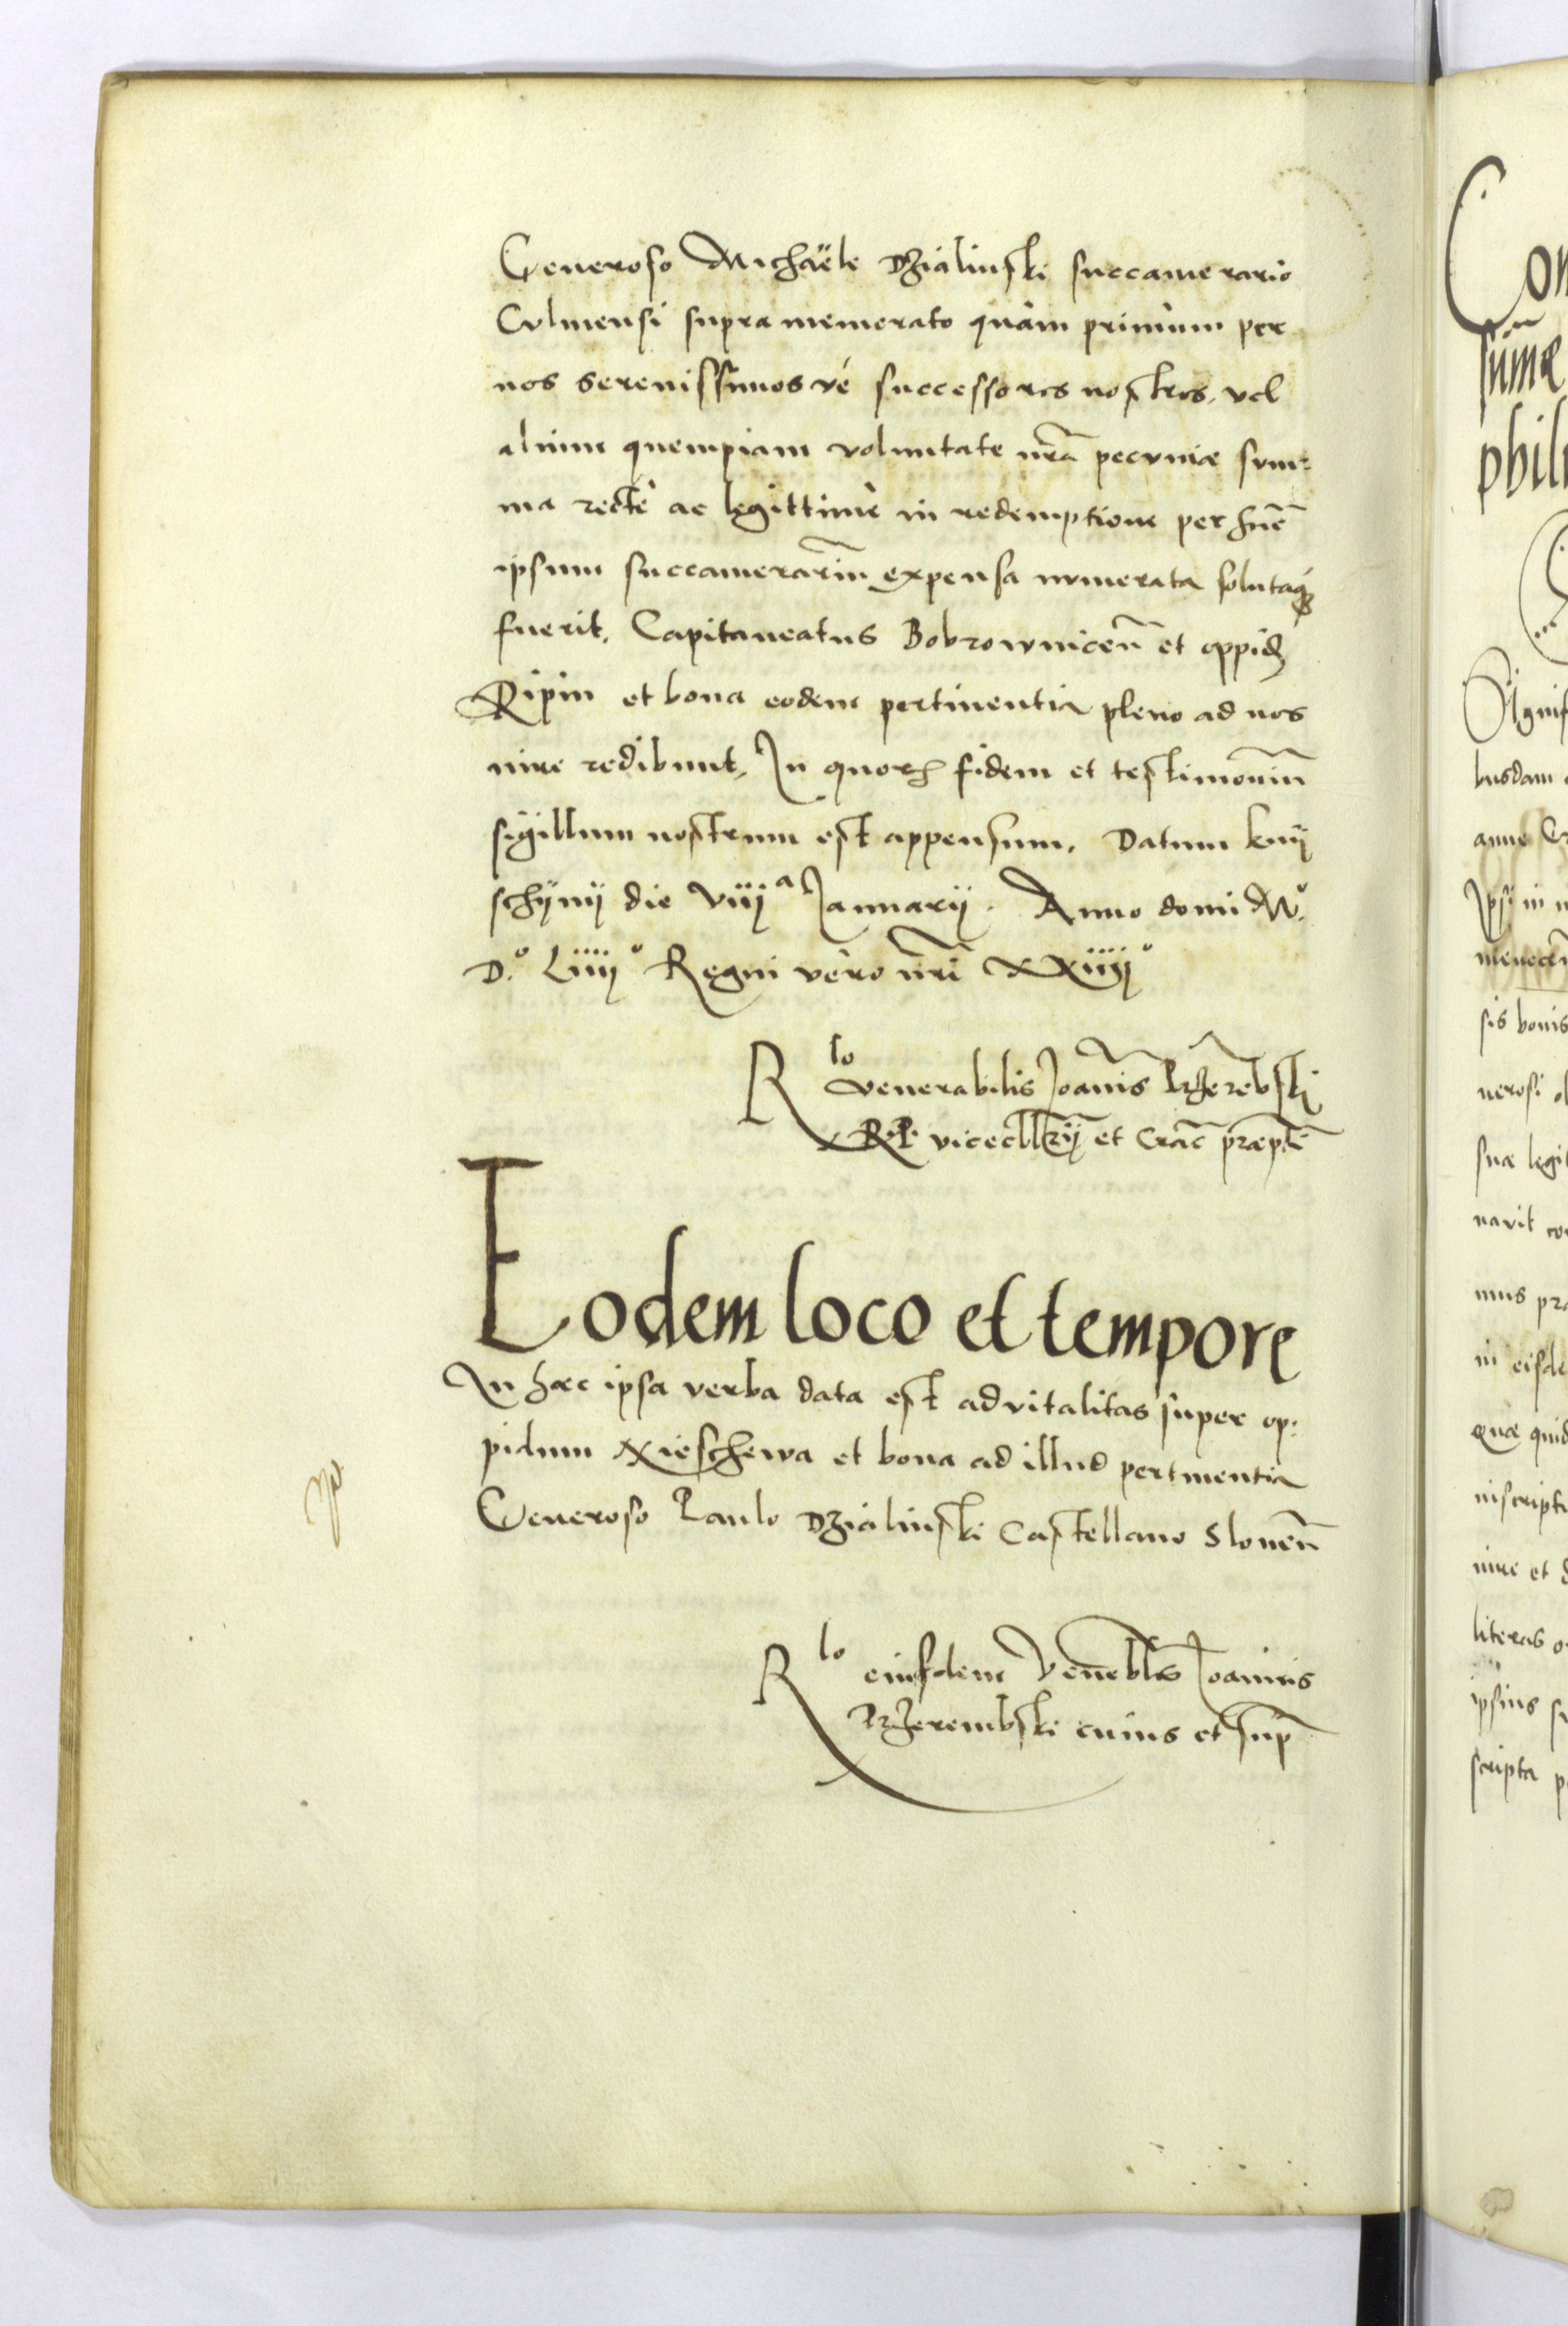 Generoso Michaële Dzialinski succamerario
Culmensi supra memorato quàm primùm per
nos serenissimos vé successores nostros, vel
alium quempiam voluntate nrã pecuniæ sum:
ma rectè ac legittimè in redemptione per hũc
ipsum succamerariũ expensa numerata solutaq3
fuerit, Capitaneatus Bobrownicen̄ et oppid
Ripin et bona eodem pertinentia pleno ad nos
iure redibunt, In quor fidem et testimoniũ
sigillum nostrum est appensum. Datum kni
schÿnij die viij a Januarij. Anno domi M.o
D.o Liiij o Regni vero nrĩ xxiiij o
R lo venerabilis Joannis Przerẽbski
R. P. vicecllrij et Crac̃ præptĩ
Eodem loco et tempore
In hæc ipsa verba data est advitalitas super op:
pidum Nieschewa et bona ad illud pertinentia
Generoso Paulo Dzialinski Castellano Slonen̄
R lo eiusdem Venebls Joannis
Przerembski cuius et sup̃
Con
sum̃æ
phili
Signif
busdam
anne
Ipsi in
sis bonis
nerosi
suæ legit
narit
mus
in eisde
quæ quid
inscripti
iure et
literas
ipsius
scripta